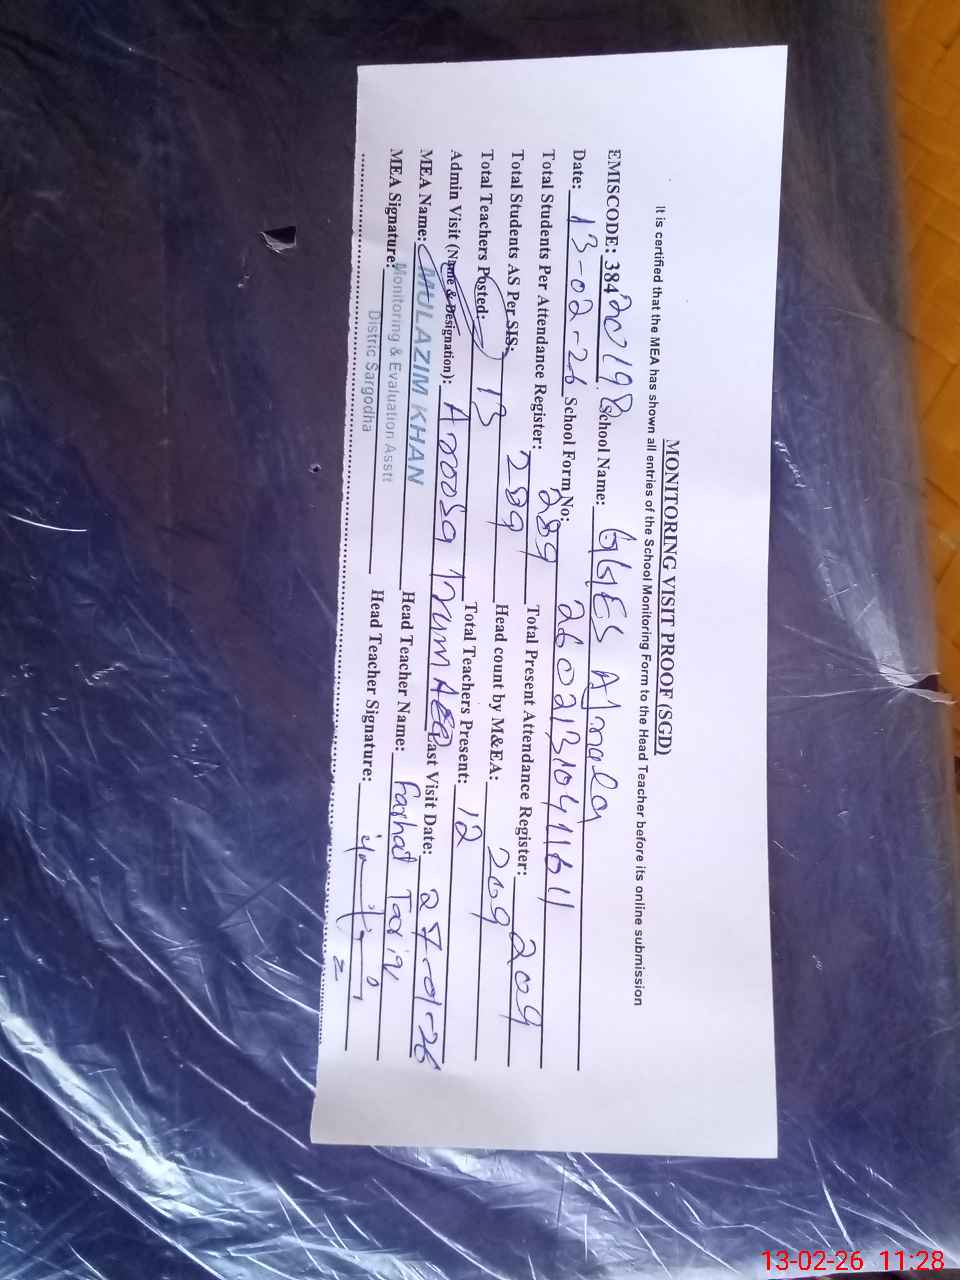 MONITORING VISIT PROOF (SGD)
It is certified that the MEA has shown all entries of the School Monitoring Form to the Head Teacher before its online submission
EMISCODE: 38420198 School Name: GGES Ajnala
Date: 13-02-26 School Form No: 26021310411611
Total Students Per Attendance Register: 289 Total Present Attendance Register: 209
Total Students AS Per SIS: 289 Head count by M&EA: 209
Total Teachers Posted: 13 Total Teachers Present: 12
Admin Visit (Name & Designation): Aroosa Last Visit Date: 27-01-26
MEA Name: MULAZIM KHAN Head Teacher Name: Farhat Tariq
MEA Signature: Monitoring & Evaluation Asstt Head Teacher Signature:
Distric Sargodha
13-02-26 11:28